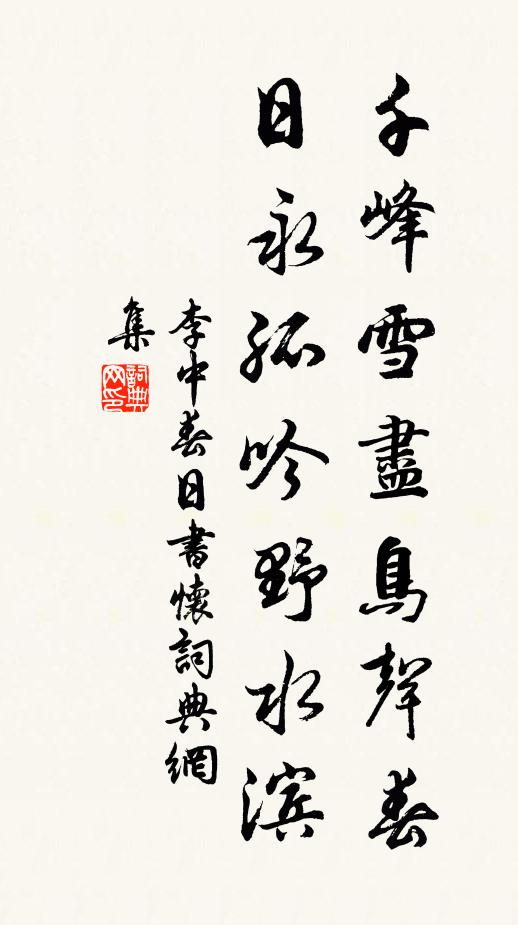 千峰雪盡鳥聲春
日永孤吟野水滨
李中春日書懷詞典網
集
詞典
网印